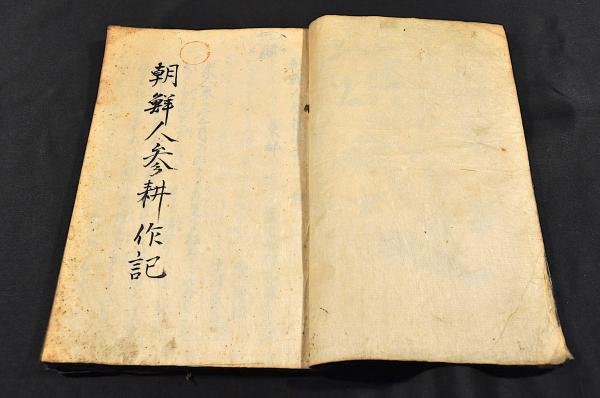 朝鮮人参耕作記